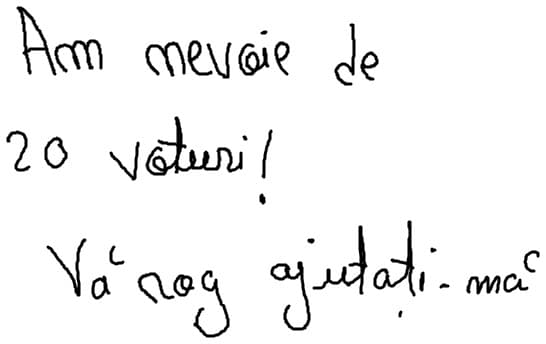 Am nevoie de
20 voturi!
Vă rog ajutați-mă